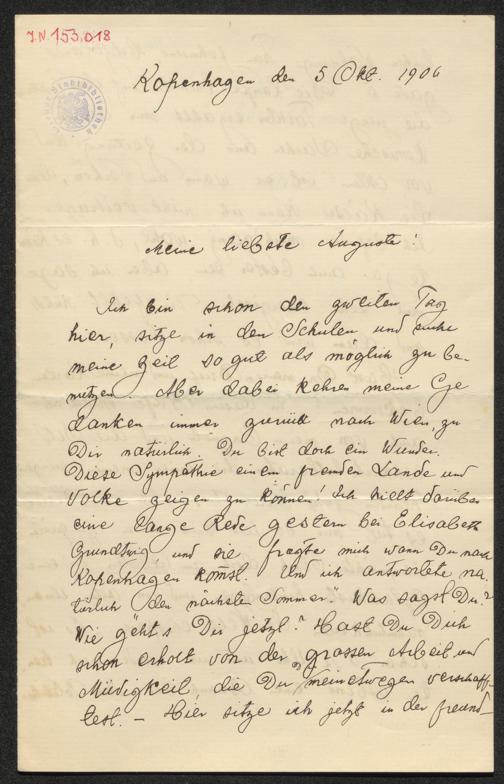 J.N. 153.018
Kopenhagen den 5 Okt. 1906
Meine liebste Auguste!
Ich bin schon den zweiten Tag
hier, sitze in den Schulen und suche
meine Zeit so gut als möglich zu be-
nutzen. Aber dabei kehren meine Ge
danken immer zurück nach Wien, zu
Dir natürlich. Du bist doch ein Wunder.
Diese Sympathie einem fremden Lande und
Volke zeigen zu können! Ich hielt darüber
eine lange Rede gestern bei Elisabeth
Grundtvig und sie fragte mich wann Du nach
Kopenhagen komst. Und ich antwortete na-
türlich "den nächsten Sommer". Was sagst Du?
Wie geht's Dir jetzt? Hast Du Dich
schon erholt von der grossen Arbeit und
Müdigkeit, die Du meinetwegen verschaff-
test. – Hier sitze ich jetzt in der freund-